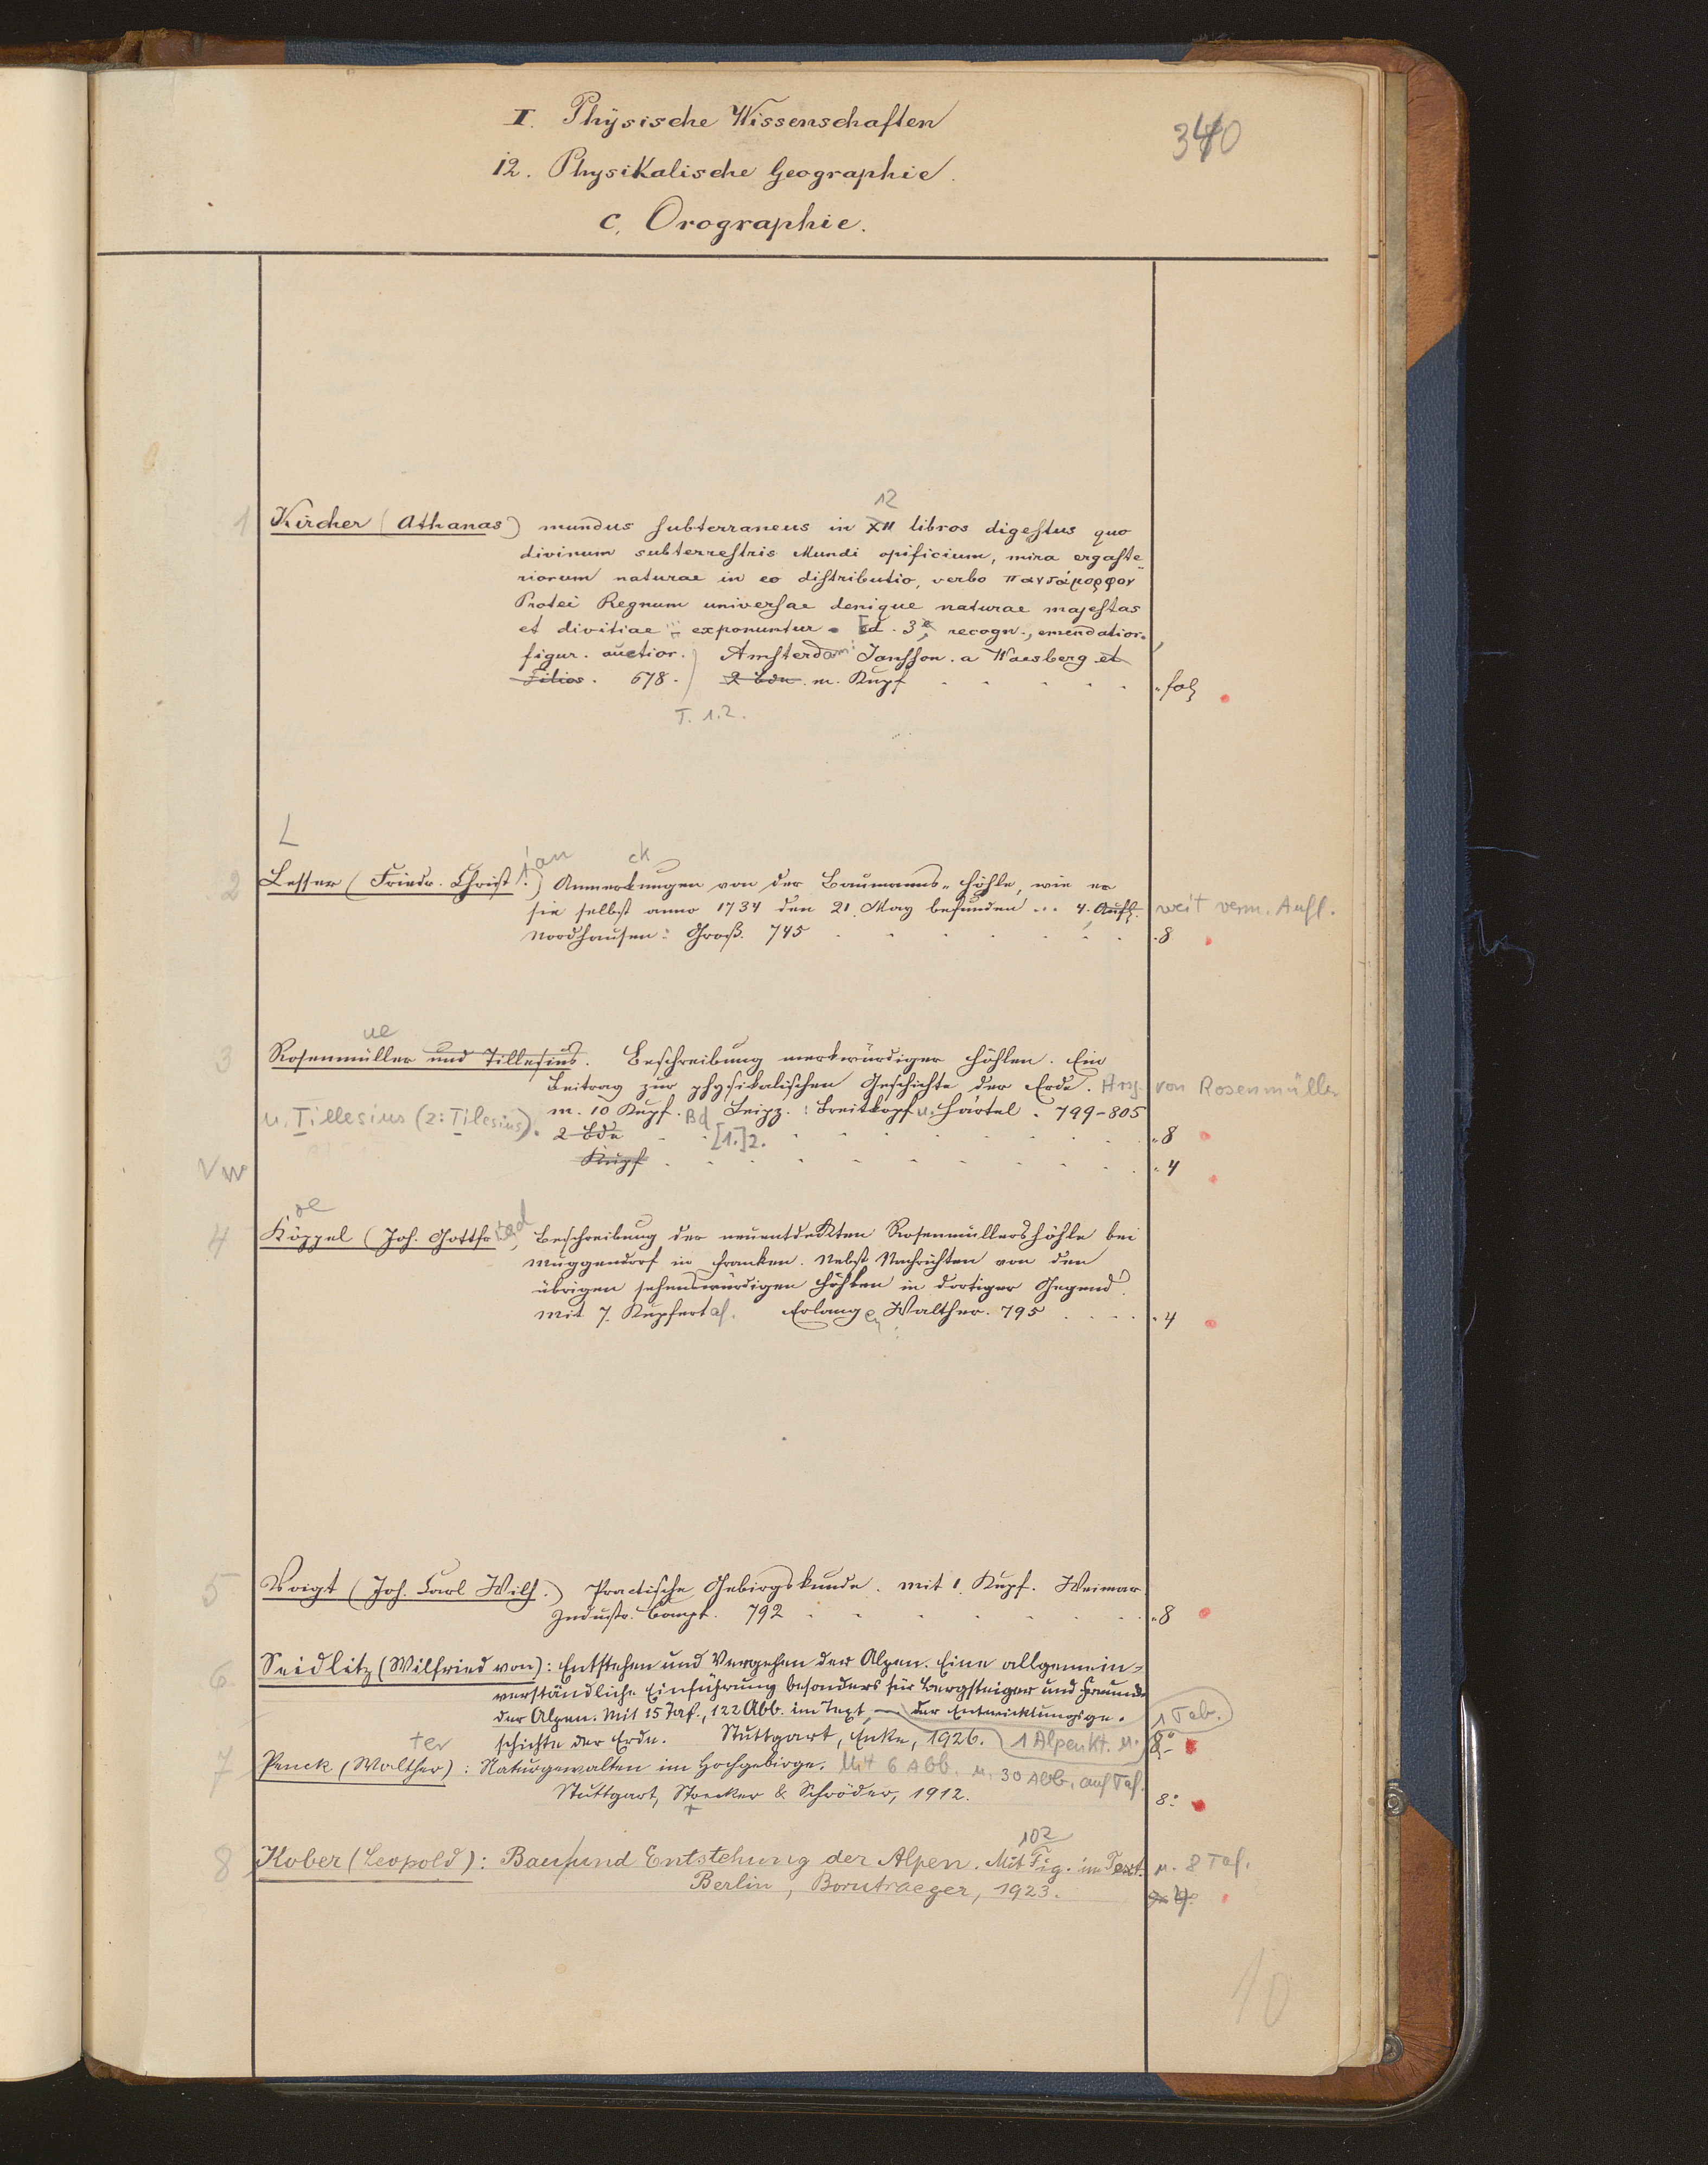 I. Physische Wissenschaften
340
12. Physikalische Geographie.
c. Orographie.
12
1 Kircher (Athanas) mundus subterraneus in XII libros digestus quo
divinum subterrestris Mundi opificium, mira ergaste
riorum naturae in eo distributio, verbo πανδάμορφον
Protei Regnum universae denique naturae majestas
et divitiae exponuntur. Ed. 3, recogn., emendatior.
figur. auctior. Amsterdam: Jansson. a Waesberg et
Filios. 678. 2 Bde. m. Kupf . . . . . fol
T. 1.2.
L
ian ck
2 Lesser (Friedr. Christ.) Anmerkungen von der Baumanns-Höhle, wie er
sie selbst anno 1734 den 21. May befunden ... 4. Aufl. weit verm. Aufl.
Nordhausen: Groß. 745 . . . . . . . 8
ue
3 Rosenmüller und Tillesius. Beschreibung merkwürdiger Höhlen. Ein
Beitrag zur physikalischen Geschichte der Erde. Hrsg. von Rosenmüller
u. Tillesius (2: Tilesius).
m. 10 Kupf. Leipz.: Breitkopf u. Härtel. 799-805
2 Bde Bd [1.]2. . . . . . . . . 8
Vw Kupf . . . . . . . . . 4
oe
4 Köppel (Joh. Gottfried, Beschreibung der neuentdekten Rosenmüllershöhle bei
Muggendorf in Franken. Nebst Nachrichten von den
übrigen sehenswürdigen Höhlen in dortiger Gegend.
Mit 7. Kupfertaf. Erlangen: Walther. 795 . . . . 4
5 Voigt (Joh. Carl Wilh.) Practische Gebirgskunde. mit 1. Kupf. Weimar
Industr. Compt. 792 . . . . . . . . 8
6 Seidlitz (Wilfried von): Entstehen und Vergehen der Alpen. Eine allgemein-
verständliche Einführung besonders für Bergsteiger und Freunde
der Alpen. Mit 15 Taf., 122 Abb. im Text, — der Entwicklungsge- 1 Tab.
schichte der Erde. Stuttgart, Enke, 1926. 1 Alpenkt. u. 8°
ter
7 Penck (Walther): Naturgewalten im Hochgebirge. Mit 6 Abb. u. 30 Abb. auf Taf.
Stuttgart, Strecker & Schröder, 1912. 8°
102
8 Kober (Leopold): Bau und Entstehung der Alpen. Mit Fig. im Text. u. 8 Taf.
Berlin, Borntraeger, 1923. 4°
10